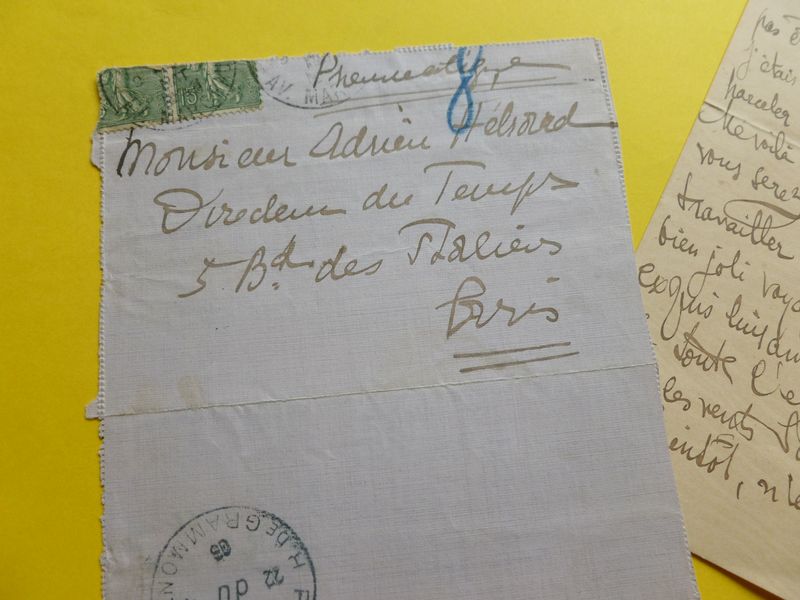 Pneumatique
8
Monsieur Adrien Hébrard
Directeur du Temps
5 Bd des Italiens
Paris
15
AV. MAC
R. H. DE GRAMMON
22
05
pas é
j'étais
Me voilà
vous serez
travailler
bien joli voya
exquis
toute l'e
les vents